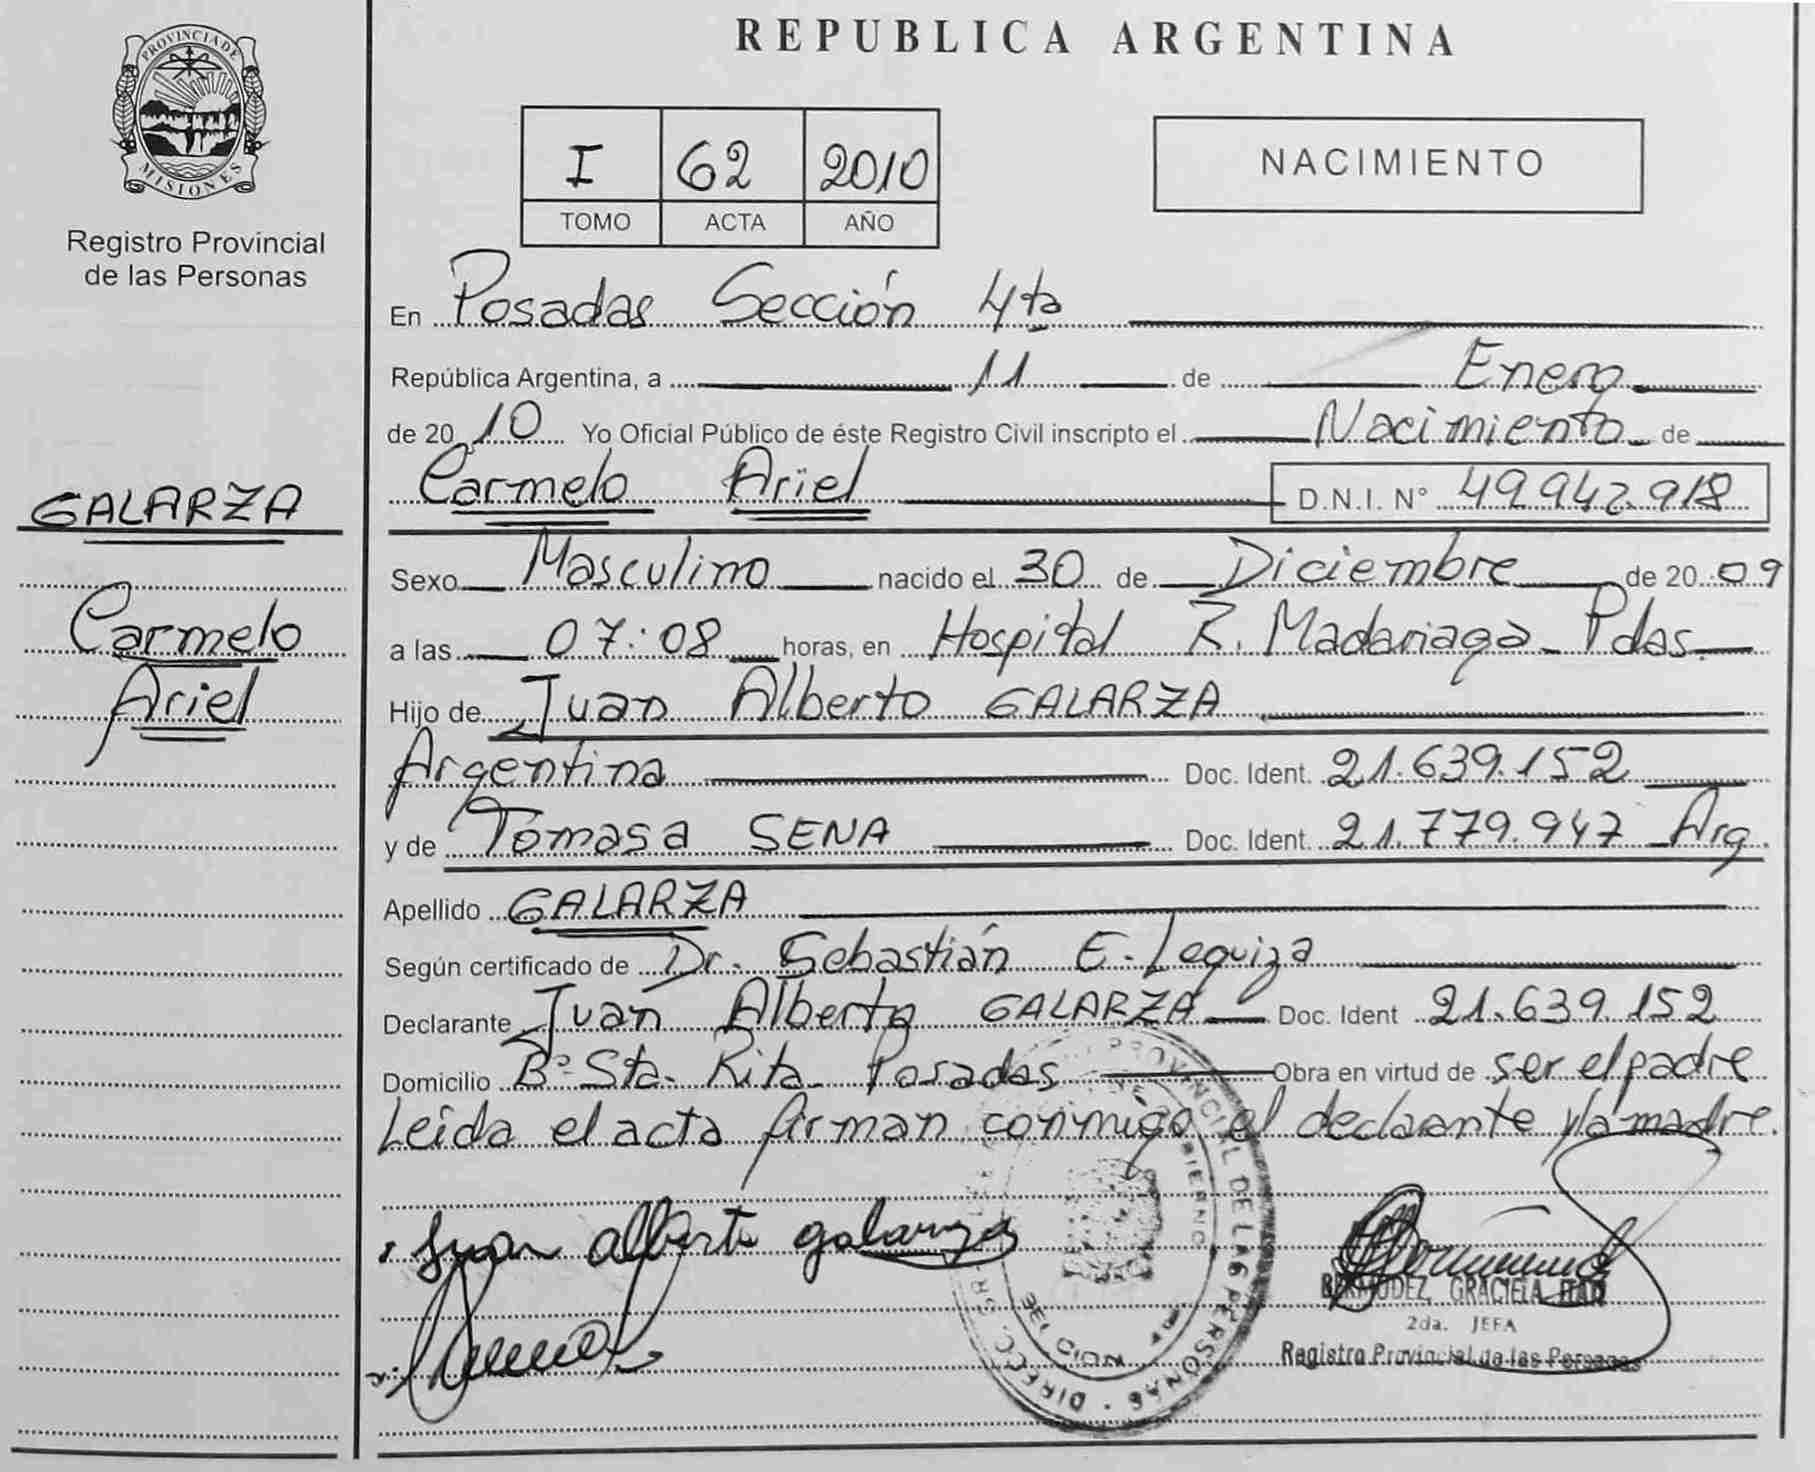 REPUBLICA ARGENTINA
PROVINCIA DE
MISIONES
Registro Provincial
de las Personas
I 62 2010
TOMO ACTA AÑO
NACIMIENTO
En Posadas Sección 4ta
República Argentina, a 11 de Enero
de 20 10 Yo Oficial Público de éste Registro Civil inscripto el Nacimiento de
Carmelo Ariel D.N.I. N° 49.942.918
GALARZA
Carmelo
Ariel
Sexo Masculino nacido el 30 de Diciembre de 20 09
a las 07:08 horas, en Hospital R. Madariaga - Pdas.
Hijo de Juan Alberto GALARZA
Argentina Doc. Ident. 21.639.152
y de Tomasa SENA Doc. Ident. 21.779.947 Arg.
Apellido GALARZA
Según certificado de Dr. Sebastián E. Leguiza
Declarante Juan Alberto GALARZA Doc. Ident 21.639.152
Domicilio B° Sta. Rita Posadas Obra en virtud de ser el padre
Leída el acta firman conmigo el declarante y la madre.
Juan alberto galarza
BERMUDEZ, GRACIELA
2da. JEFA
Registro Provincial de las Personas
PROVINCIAL DE LAS PERSONAS